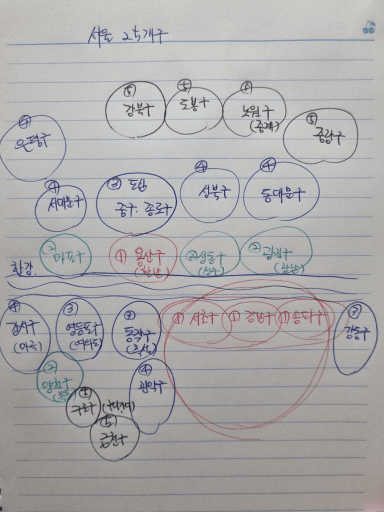 서울 25개구
⑤ 강북구
⑤ 도봉구
노원구
(중계)
⑤ 중랑구
은평구
④ 서대문구
③ 도심
중구·종로구
④ 성북구
④ 동대문구
② 마포구
① 용산구
(한남)
② 성동구
(성수)
② 광진구
(광남)
한강
④ 강서구
(마곡)
③ 영등포구
(여의도)
동작구
(흑석)
① 서초구
① 강남구
① 송파구
강동구
② 양천구
(목동)
④ 관악구
⑤ 구로구
⑤ 금천구